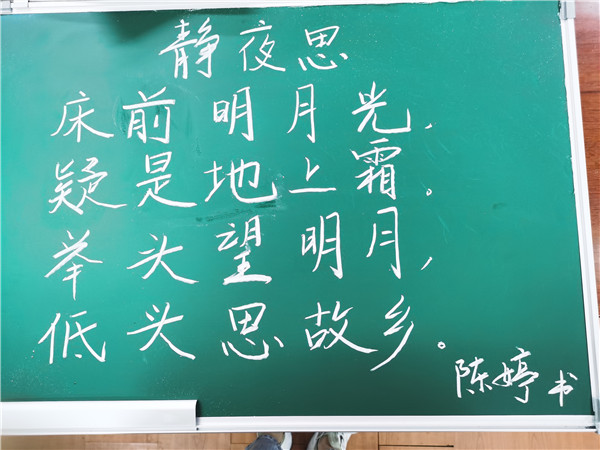 静夜思
床前明月光,
疑是地上霜。
举头望明月,
低头思故乡。
陈婷书